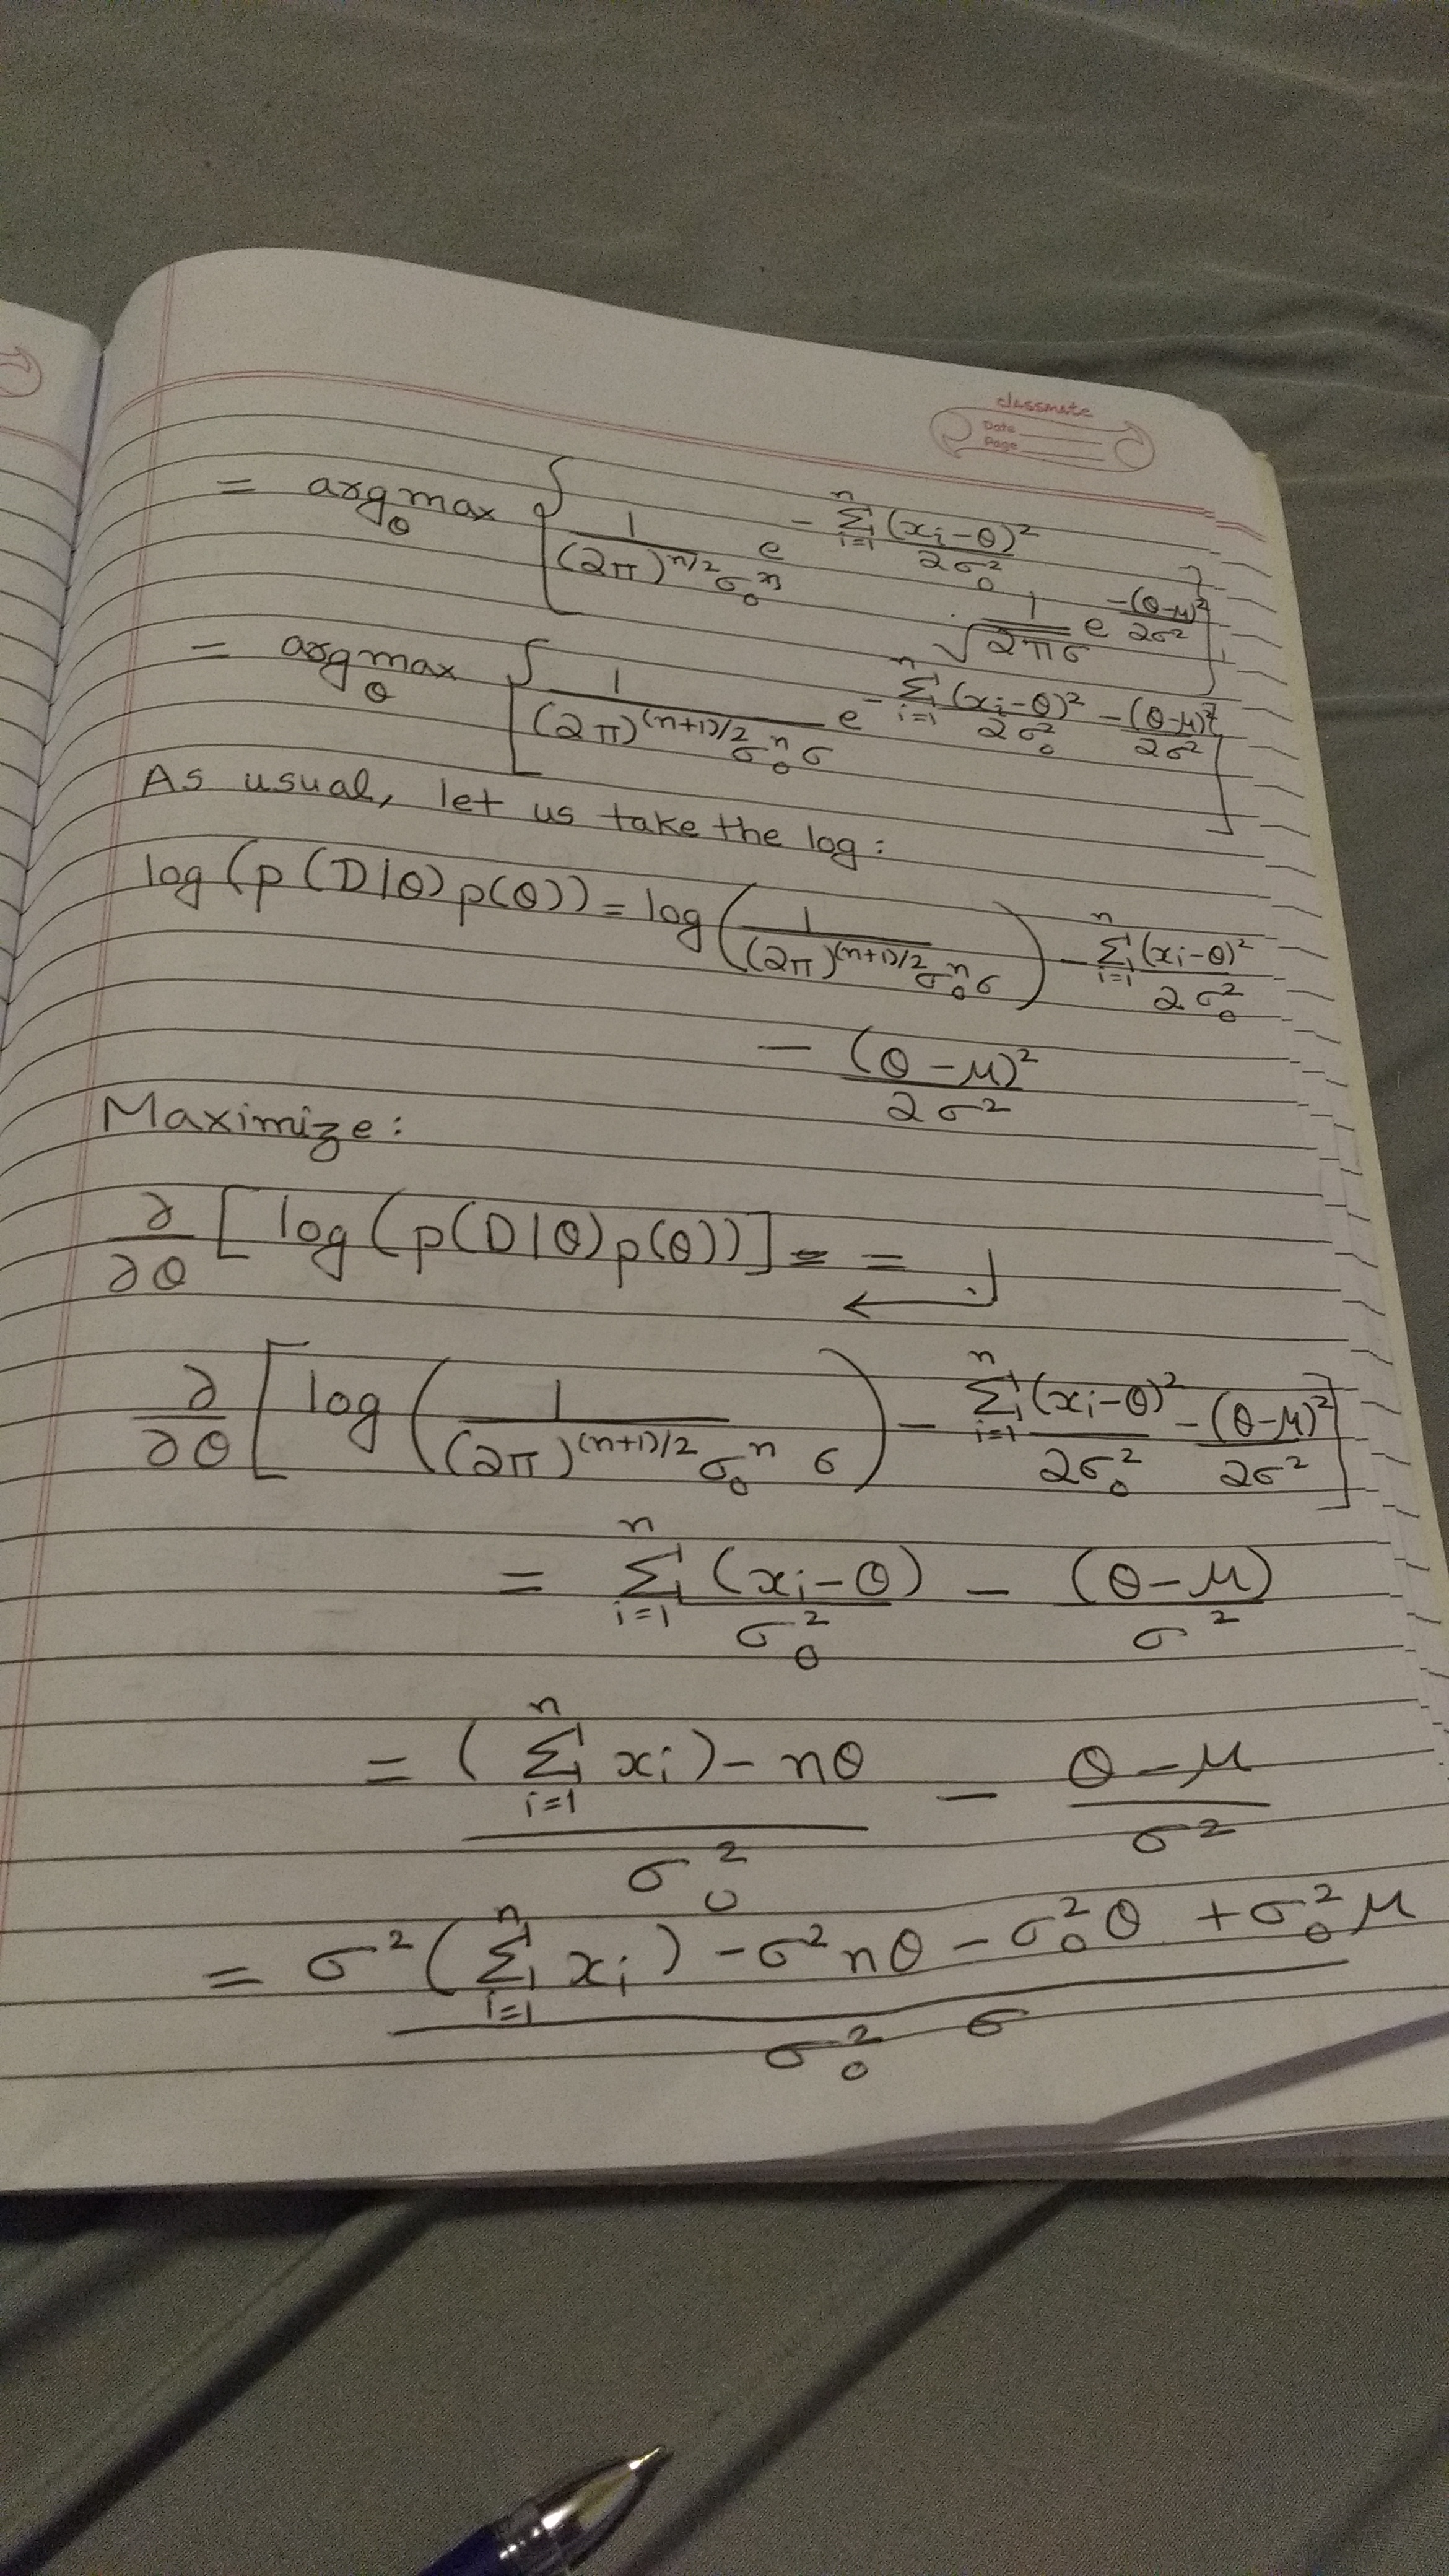 classmate
Date
Page
= argmax_θ [ 1/((2π)^(n/2) σ₀^n) e^(-Σ_{i=1}^n (x_i-θ)²/2σ₀²)
1/(√2π σ) e^(-(θ-μ)²/2σ²) ]
= argmax_θ [ 1/((2π)^((n+1)/2) σ₀^n σ) e^(-Σ_{i=1}^n (x_i-θ)²/2σ₀² - (θ-μ)²/2σ²) ]
As usual, let us take the log:
log(p(D|θ)p(θ)) = log(1/((2π)^((n+1)/2) σ₀^n σ)) - Σ_{i=1}^n (x_i-θ)²/2σ₀²
- (θ-μ)²/2σ²
Maximize:
∂/∂θ [log(p(D|θ)p(θ))] = =
∂/∂θ [log(1/((2π)^((n+1)/2) σ₀^n σ)) - Σ_{i=1}^n (x_i-θ)²/2σ₀² - (θ-μ)²/2σ²]
= Σ_{i=1}^n (x_i-θ)/σ₀² - (θ-μ)/σ²
= ((Σ_{i=1}^n x_i) - nθ)/σ₀² - (θ-μ)/σ²
= (σ²(Σ_{i=1}^n x_i) - σ²nθ - σ₀²θ + σ₀²μ)/(σ₀² σ)